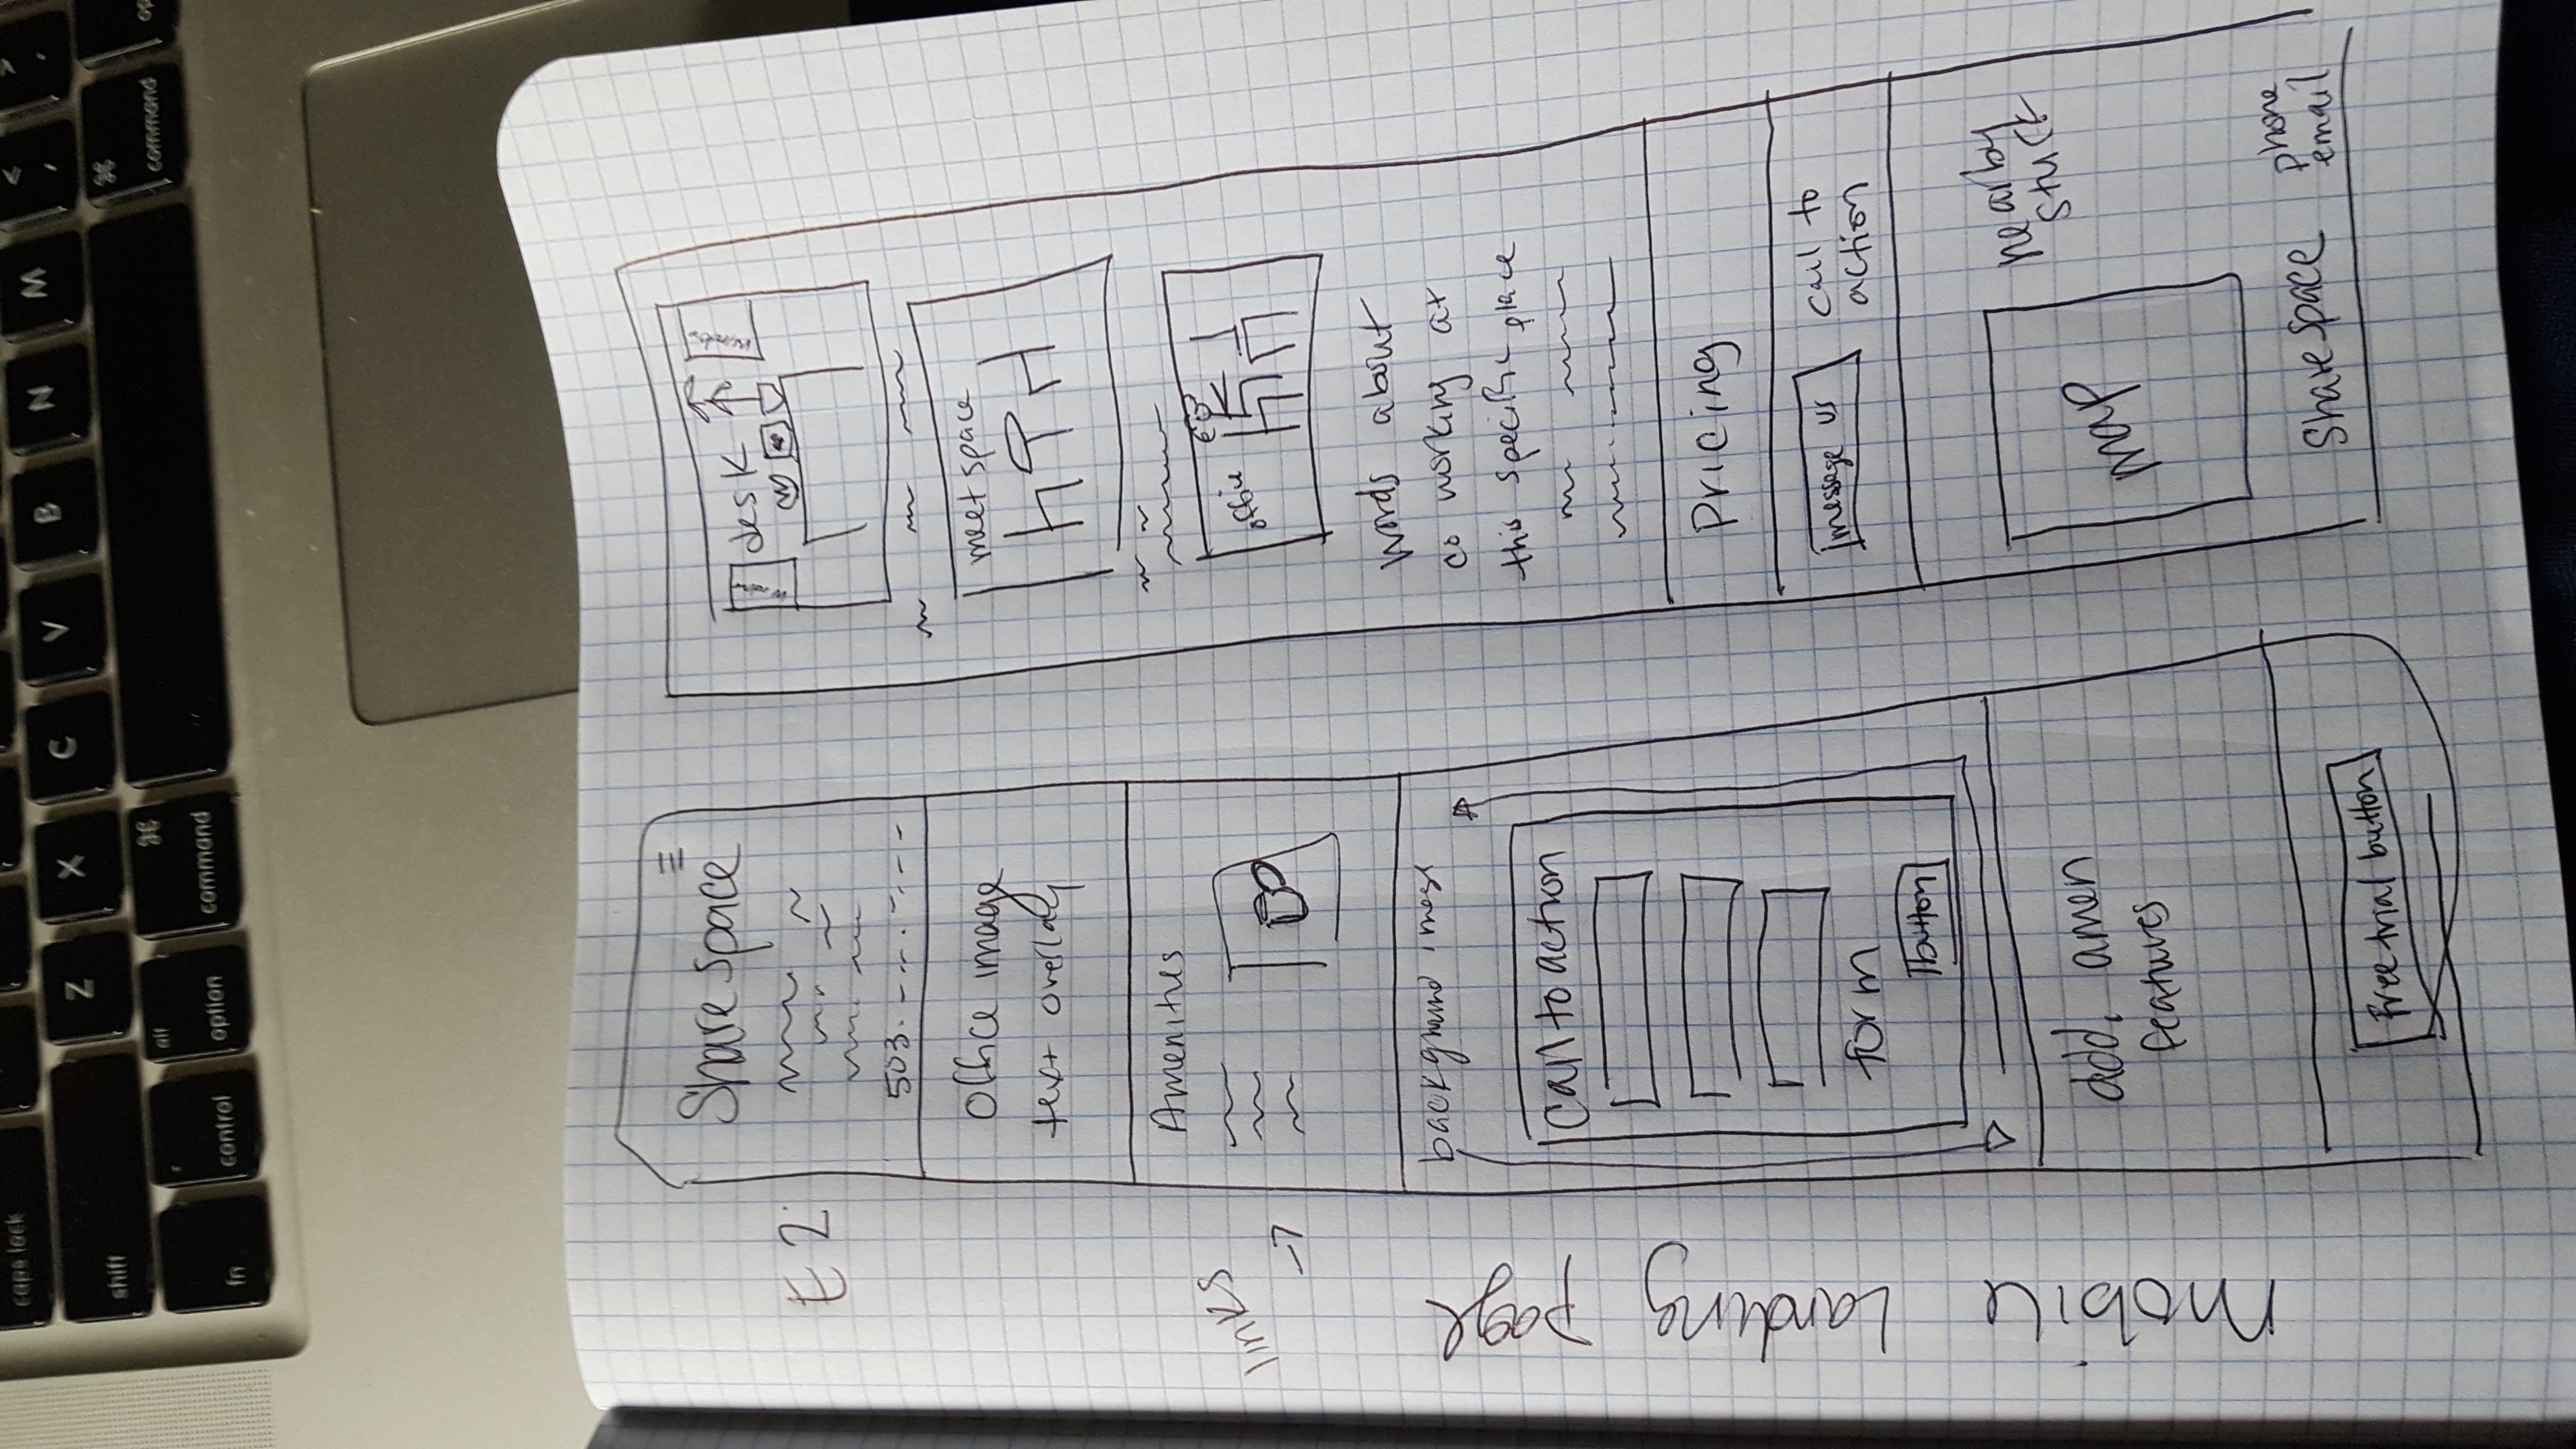 caps lock
shift
Z
X
C
V
B
N
M
<
,
>
.
fn
control
alt
option
⌘
command
⌘
command
op
E2
links
Mobile Landing page
Share space
503.
Office image
text overlay
Amenities
background image
Call to action
form
button
add. amen
features
Free trial button
desk
meet space
office
words about
co working at
this specific place
Pricing
message us
call to
action
map
nearby
stuff
Share space
phone
email